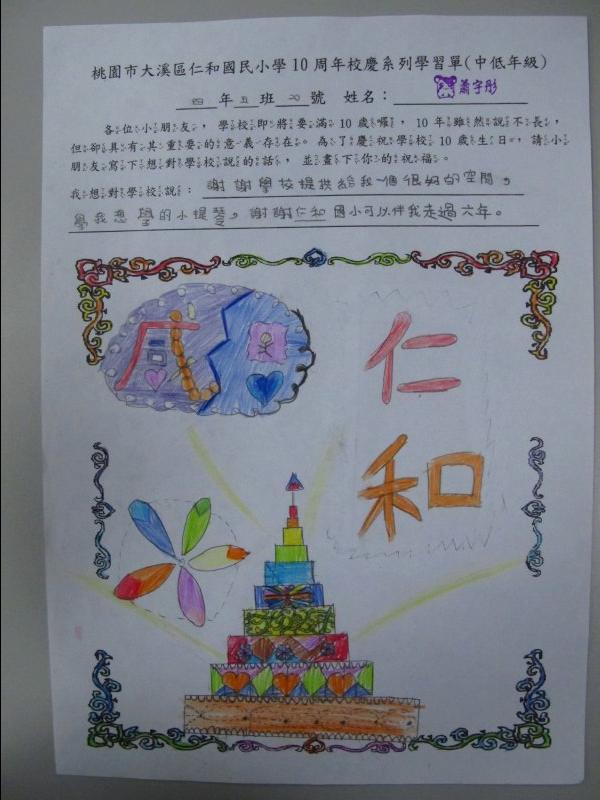 桃園市大溪區仁和國民小學10周年校慶系列學習單(中低年級)
四年五班20號 姓名：蕭宇彤
各位小朋友，學校即將要滿10歲囉，10年雖然說不長，
但卻具有其重要的意義存在。為了慶祝學校10歲生日，請小
朋友寫下想對學校說的話，並畫下你的祝福。
我想對學校說：謝謝學校提供給我一個很好的空間，
學我想學的小提琴，謝謝仁和國小可以伴我走過六年。
感恩
仁
和